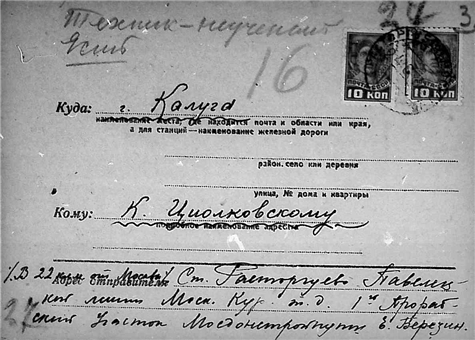 Техник-неученый
27 3
Есть
16
10 КОП 10 КОП
Куда: г. Калуга
наименование места, где находится почта и области или края,
а для станций—наименование железной дороги
район, село или деревня
улица, № дома и квартиры
Кому: К. Циолковскому
подробное наименование адресата
/.В 22 км от Москвы/ Ст. Расторгуево Павелец-
Адрес отправителя:
кой линии Моск. Кур. ж.д. 1й Прораб-
ский Участок Мосдонстройпути Е. Березин.